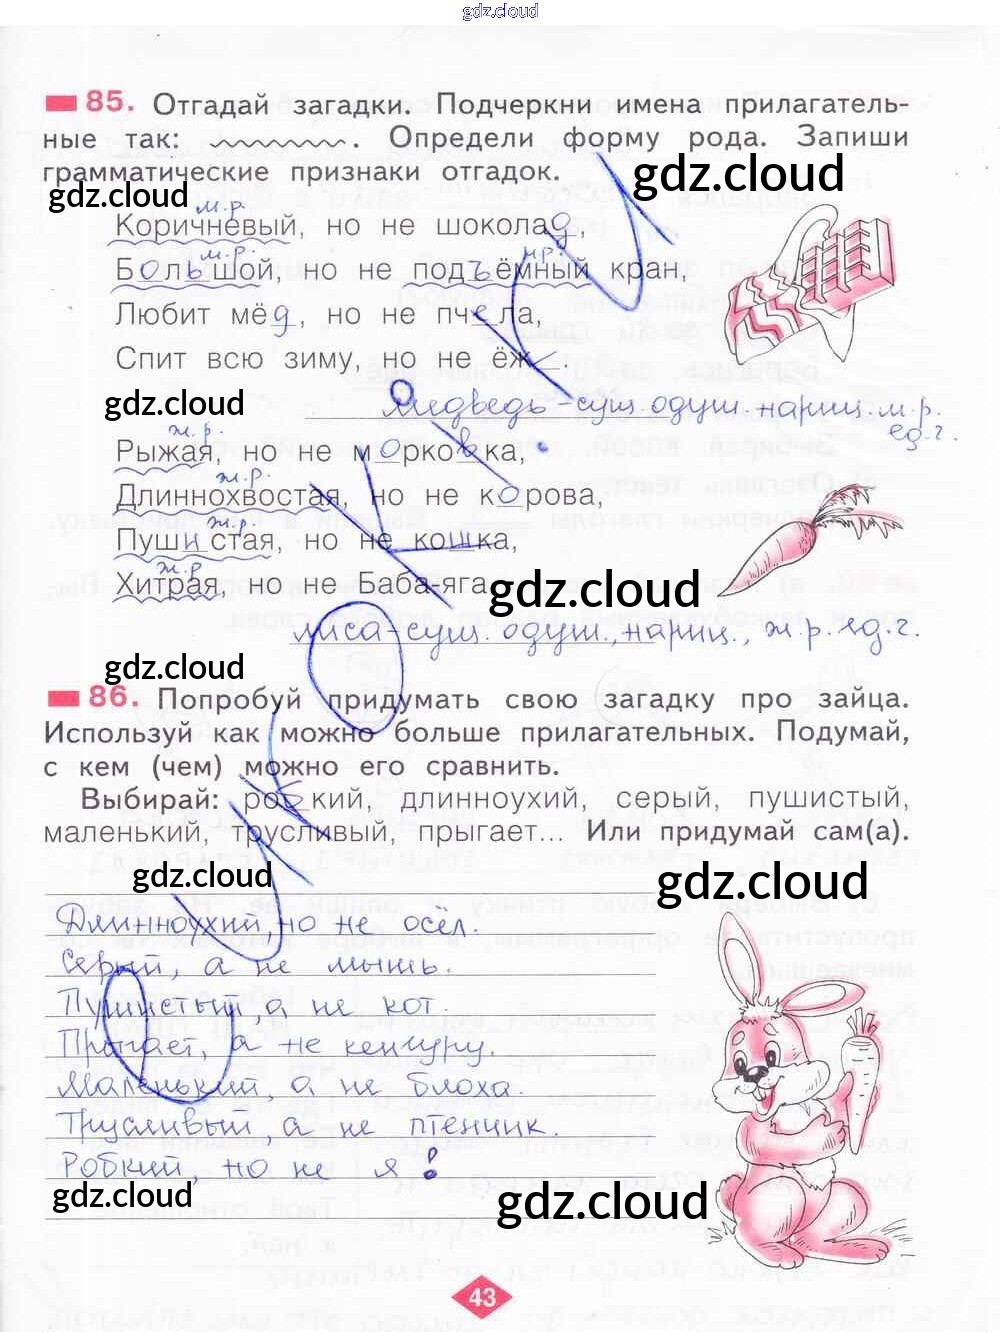 gdz.cloud
85. Отгадай загадки. Подчеркни имена прилагатель-
ные так: . Определи форму рода. Запиши
грамматические признаки отгадок.
gdz.cloud
gdz.cloud
м.р.
Коричневый, но не шоколад,
м.р. м.р.
Большой, но не подъёмный кран,
Любит мёд, но не пчела,
Спит всю зиму, но не ёж.
gdz.cloud
медведь - сущ. одуш. нариц. м.р.
ед.ч.
ж.р.
Рыжая, но не морковка,
ж.р.
Длиннохвостая, но не корова,
ж.р.
Пушистая, но не кошка,
ж.р
Хитрая, но не Баба-яга.
gdz.cloud
лиса - сущ. одуш., нариц., ж.р. ед.ч.
gdz.cloud
86. Попробуй придумать свою загадку про зайца.
Используй как можно больше прилагательных. Подумай,
с кем (чем) можно его сравнить.
Выбирай: робкий, длинноухий, серый, пушистый,
маленький, трусливый, прыгает... Или придумай сам(а).
gdz.cloud
gdz.cloud
Длинноухий, но не осёл.
Серый, а не мышь.
Пушистый, а не кот
Прыгает, а не кенгуру.
Маленький, а не блоха.
Трусливый, а не птенчик.
Робкий, но не я!
gdz.cloud
gdz.cloud
43